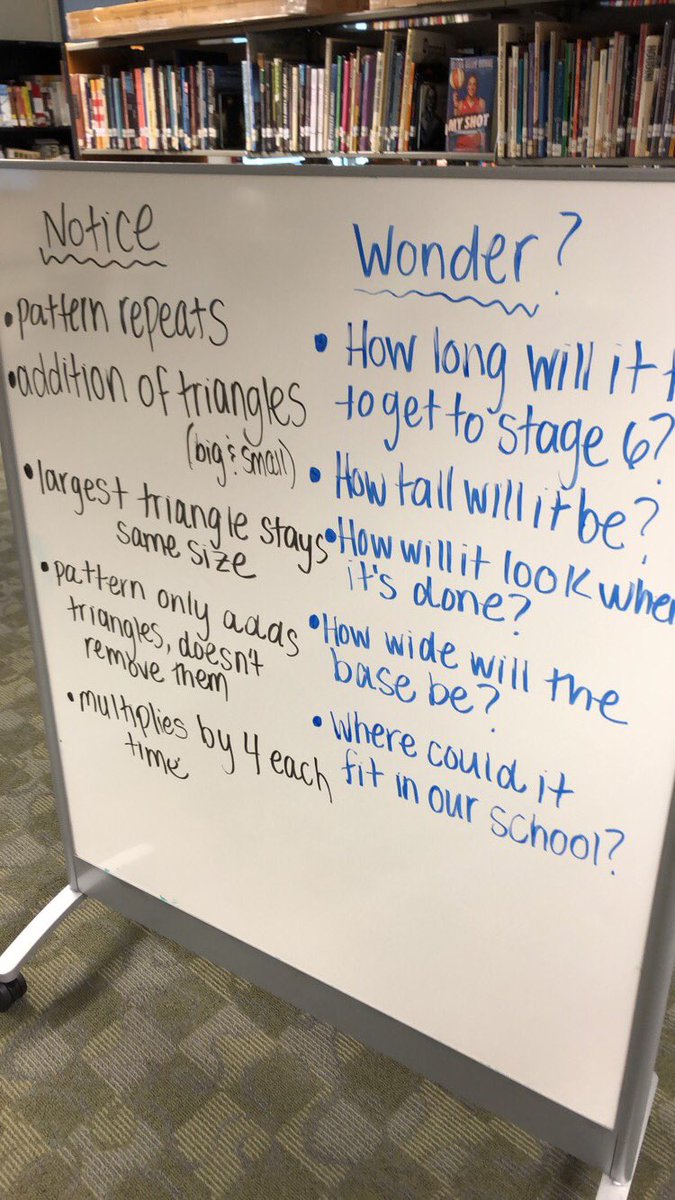 MY SHOT
Notice
• pattern repeats
• addition of triangles
(big & small)
• largest triangle stays
same size
• pattern only adds
triangles, doesn't
remove them
• multiplies by 4 each
time
Wonder?
• How long will it t
to get to stage 6?
• How tall will it be?
• How will it look when
it's done?
• How wide will the
base be?
• Where could it
fit in our school?